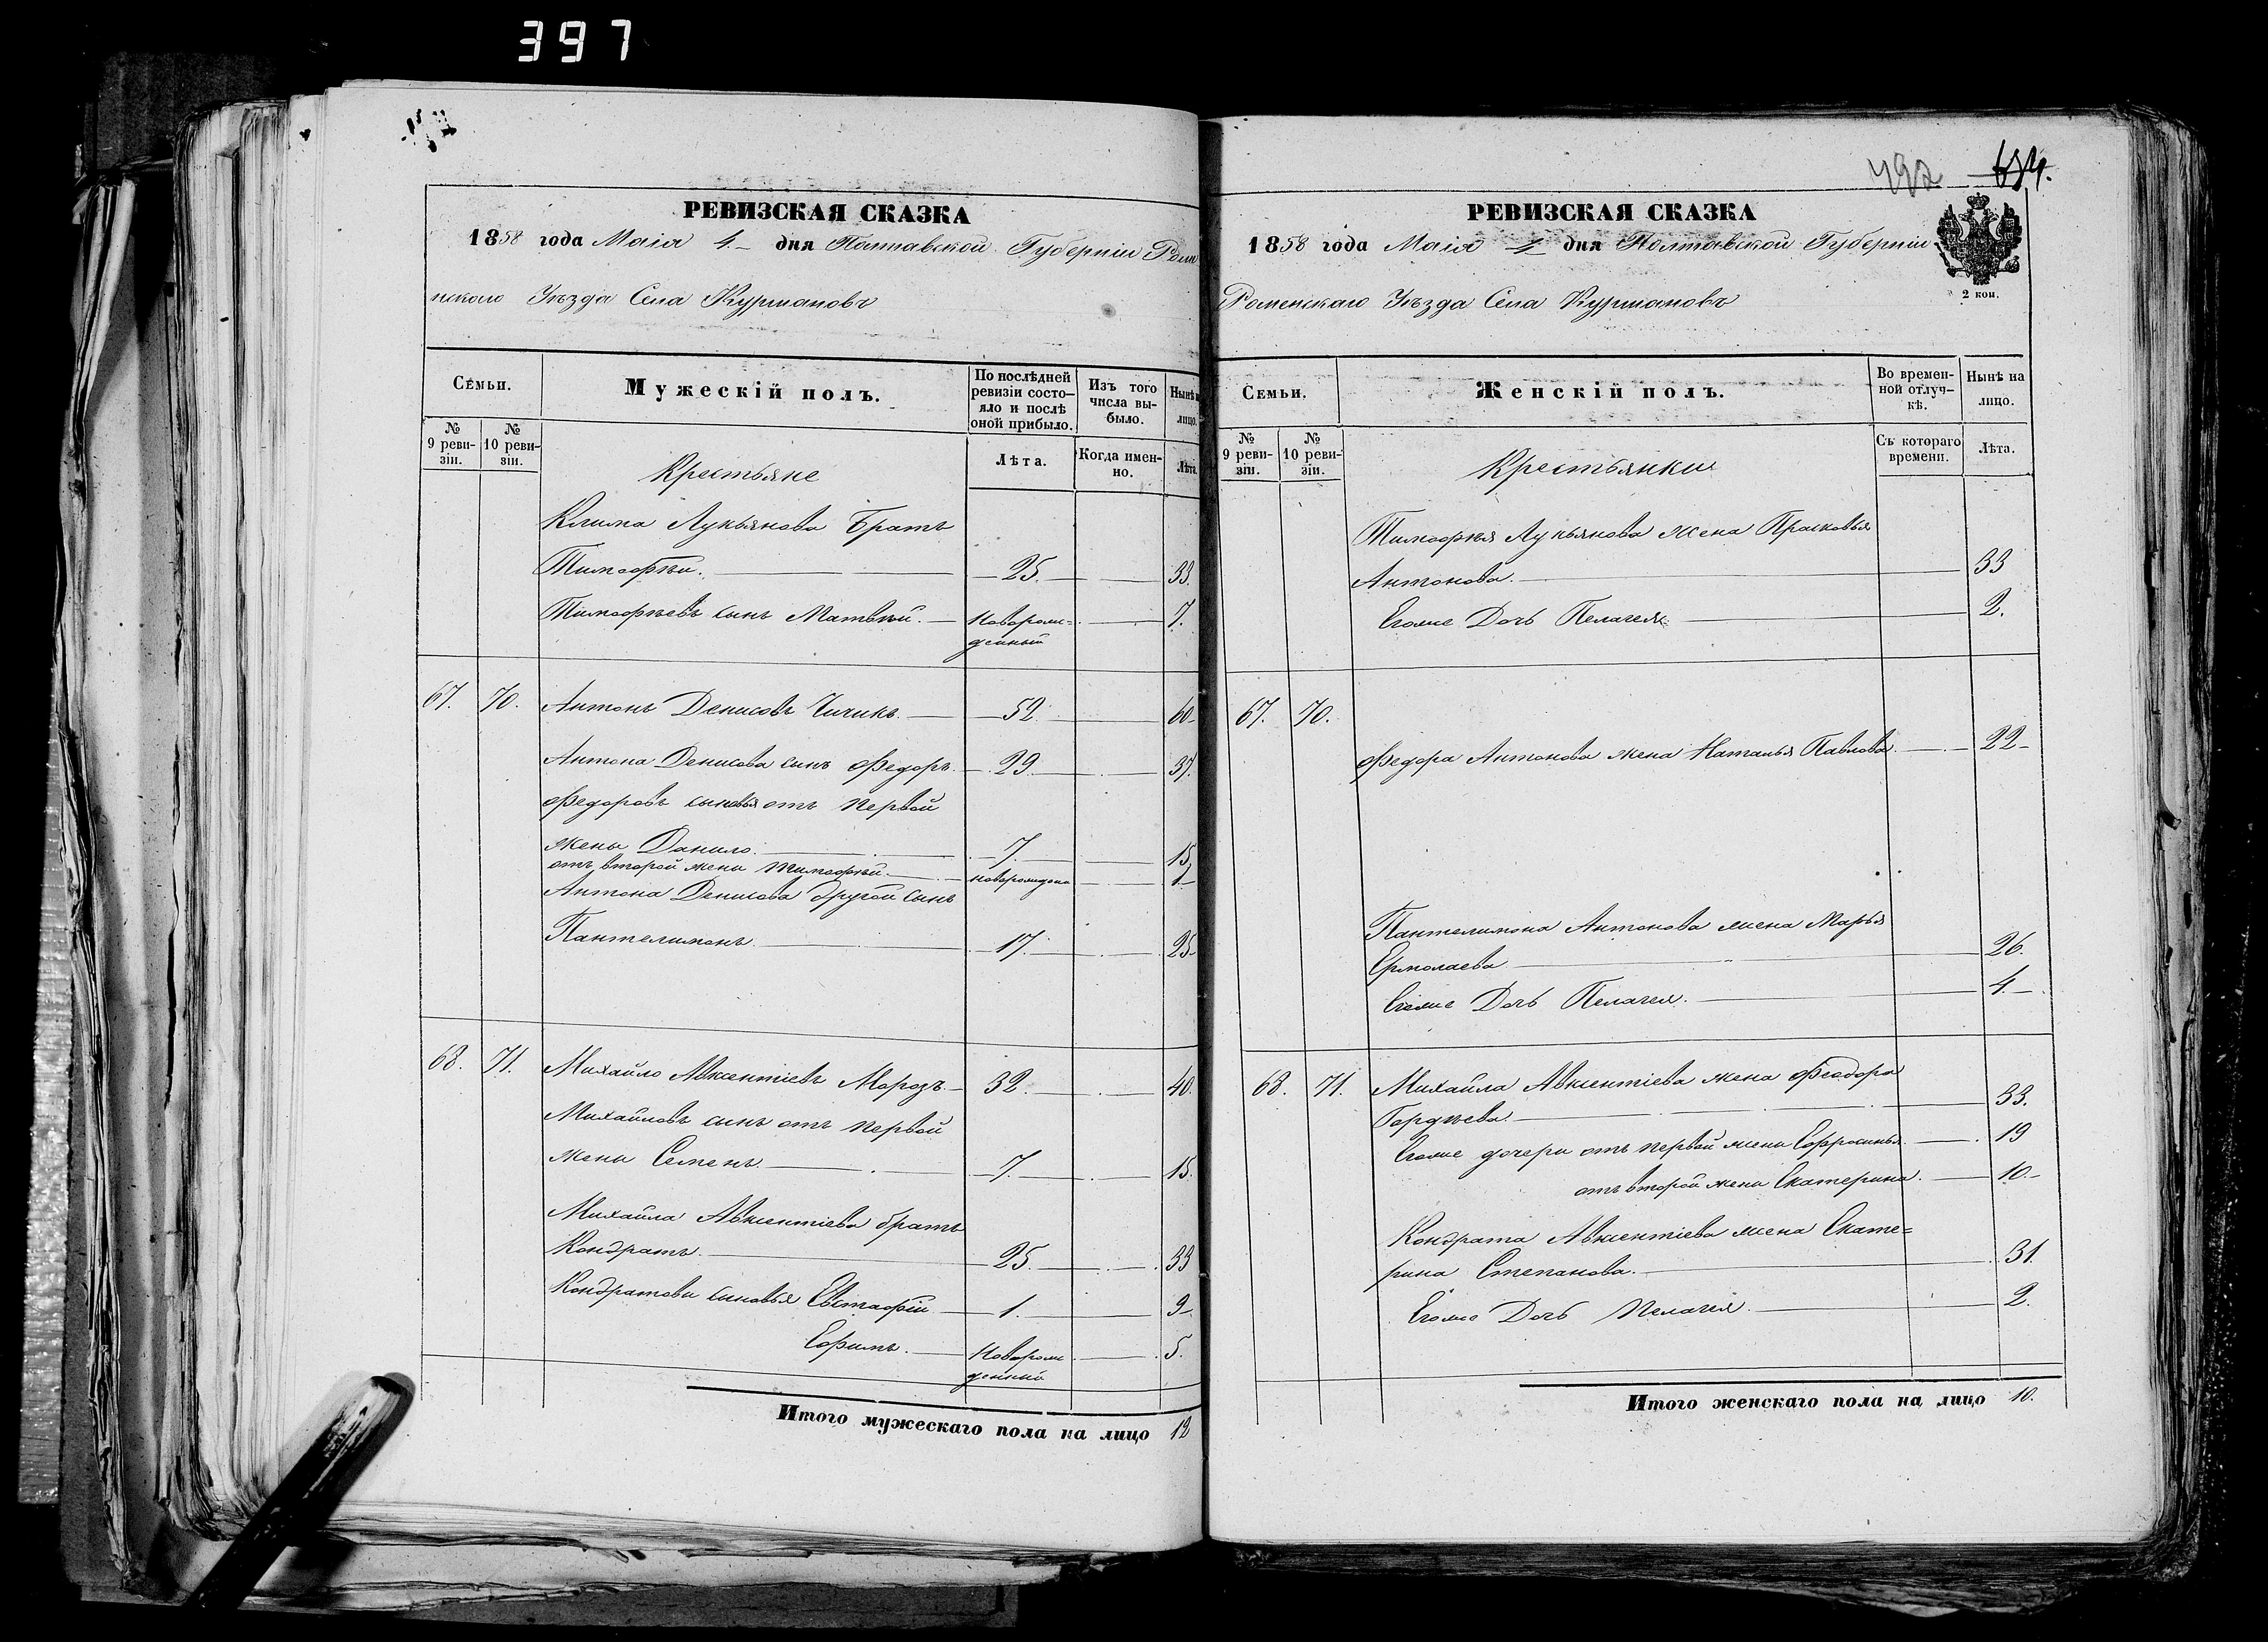 397
РЕВИЗСКАЯ СКАЗКА
1858 года Маія 4. дня Полтавской Губерніи Роме
нскаго Уѣзда Села Курмановъ
Семьи.
Мужескій полъ.
По послѣдней ревизіи состояло и послѣ оной прибыло.
Изъ того числа выбыло.
Нынѣ на лицо.
№ 9 ревизіи.
№ 10 ревизіи.
Лѣта.
Когда именно.
Лѣта.
Крестьяне
Клима Лукьянова Братъ
Тимофѣй. 25. 33.
Тимофѣевъ сынъ Матвѣй. Новорож=
денный 7.
67. 70. Антонъ Денисовъ Чичикъ 52. 60
Антона Денисова сынъ Федоръ 29. 37.
Федоровъ сыновья отъ первой
жены Данило. 7. 15
отъ второй жены Тимофѣй. новорожденъ 1
Антона Денисова другой сынъ
Пантелимонъ 17. 25
68. 71. Михайло Авксентіевъ Морозъ 32. 40.
Михайловъ сынъ отъ первой
жены Семенъ. 7. 15.
Михайла Авксентіева братъ
Кондратъ. 25. 33
Кондратовы сыновья Евстафій 1. 9
Ефимъ. Новорож
денный 5.
Итого мужескаго пола на лицо 12
492 634.
РЕВИЗСКАЯ СКАЗКА
1858 года Маія 4 дня Полтавской Губерніи
Роменскаго Уѣзда Села Курмановъ
2 коп.
Семьи.
Женскій полъ.
Во временной отлучкѣ.
Нынѣ на лицо.
№ 9 ревизіи.
№ 10 ревизіи.
Съ котораго времени.
Лѣта.
Крестьянки
Тимофѣя Лукьянова жена Прасковья
Антонова. 33
Егоже Дочь Пелагея 2.
67. 70.
Федора Антонова жена Наталья Павлова 22
Пантелимона Антонова жена Марья
Ермолаева 26.
Егоже Дочь Пелагея. 4.
68. 71. Михайла Авксентіева жена Феодора
Гордѣева. 33.
Егоже дочери отъ первой жены Ефросинья. 19
отъ второй жены Екатерина. 10.
Кондрата Авксентіева жена Екате=
рина Степанова. 31.
Егоже Дочь Пелагея. 2.
Итого женскаго пола на лицо 10.